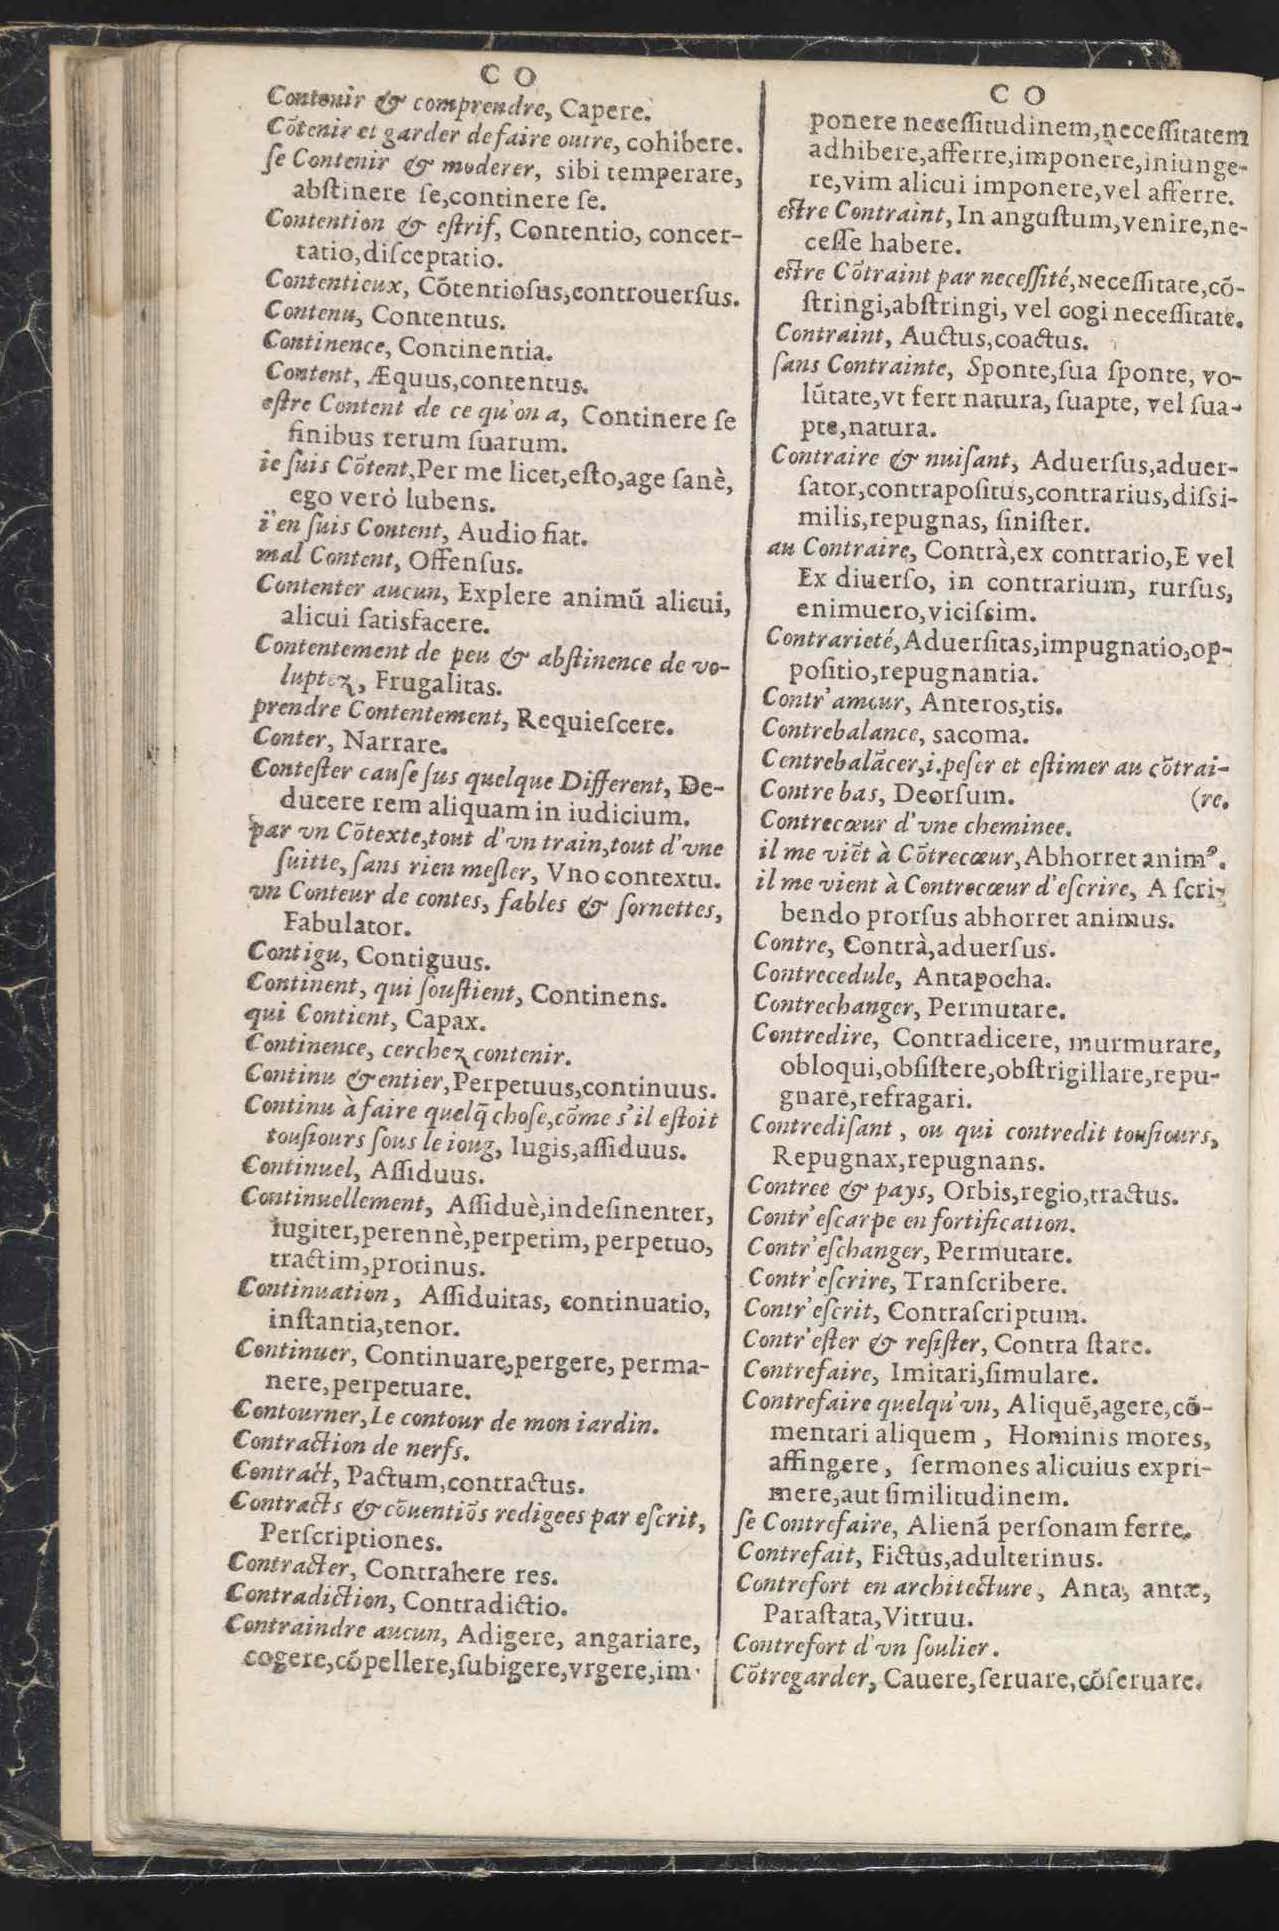 CO
Contenir & comprendre, Capere.
Cõtenir et garder de faire outre, cohibere.
ſe Contenir & moderer, sibi temperare,
abſtinere ſe,continere ſe.
Contention & eſtrif, Contentio, concer-
tatio,diſceptatio.
Contentieux, Cõtentioſus,controuerſus.
Contenu, Contentus.
Continence, Continentia.
Content, Æquus,contentus.
eſtre Content de ce qu'on a, Continere ſe
finibus rerum ſuarum.
ie ſuis Cõtent,Per me licet,eſto,age ſanè,
ego verò lubens.
i'en ſuis Content, Audio fiat.
mal Content, Offenſus.
Contenter aucun, Explere animũ alicui,
alicui ſatisfacere.
Contentement de peu & abſtinence de vo-
luptez, Frugalitas.
prendre Contentement, Requieſcere.
Conter, Narrare.
Conteſter cauſe ſus quelque Different, De-
ducere rem aliquam in iudicium.
par vn Cõtexte,tout d'vn train,tout d'vne
ſuitte, ſans rien meſler, Vno contextu.
vn Conteur de contes, fables & ſornettes,
Fabulator.
Contigu, Contiguus.
Continent, qui ſouſtient, Continens.
qui Contient, Capax.
Continence, cerchez contenir.
Continu & entier,Perpetuus,continuus.
Continu à faire quelq̃ choſe,cõme s'il eſtoit
touſiours ſous le ioug, Iugis,aſſiduus.
Continuel, Aſſiduus.
Continuellement, Aſſiduè,indeſinenter,
iugiter,perennè,perpetim, perpetuo,
tractim,protinus.
Continuation, Aſſiduitas, continuatio,
inſtantia,tenor.
Continuer, Continuare,pergere, perma-
nere,perpetuare.
Contourner,Le contour de mon iardin.
Contraction de nerfs.
Contract, Pactum,contractus.
Contracts & cõuentiõs redigees par eſcrit,
Perſcriptiones.
Contracter, Contrahere res.
Contradiction, Contradictio.
Contraindre aucun, Adigere, angariare,
cogere,cõpellere,ſubigere,vrgere,im-
CO
ponere neceſſitudinem,neceſſitatem
adhibere,afferre,imponere,iniunge-
re,vim alicui imponere,vel afferre.
eſtre Contraint, In anguſtum,venire,ne-
ceſſe habere.
eſtre Cõtraint par neceſſité,Neceſſitate,cõ-
ſtringi,abſtringi, vel cogi neceſſitate.
Contraint, Auctus,coactus.
ſans Contrainte, Sponte,ſua ſponte, vo-
lũtate,vt fert natura, ſuapte, vel ſua-
pte,natura.
Contraire & nuiſant, Aduerſus,aduer-
ſator,contrapoſitus,contrarius,diſsi-
milis,repugnas, ſiniſter.
au Contraire, Contrà,ex contrario,E vel
Ex diuerſo, in contrarium, rurſus,
enimuero,viciſsim.
Contrarieté,Aduerſitas,impugnatio,op-
poſitio,repugnantia.
Contr'amour, Anteros,tis.
Contrebalance, sacoma.
Contrebalãcer,i.peſer et eſtimer au cõtrai-
Contre bas, Deorſum. (re.
Contrecœur d'vne cheminee.
il me viẽt à Cõtrecœur,Abhorret animꝰ.
il me vient à Contrecœur d'eſcrire, A ſcri-
bendo prorſus abhorret animus.
Contre, Contrà,aduerſus.
Contrecedule, Antapocha.
Contrechanger, Permutare.
Contredire, Contradicere, murmurare,
obloqui,obſiſtere,obſtrigillare,repu-
gnare,refragari.
Contrediſant, ou qui contredit touſiours,
Repugnax,repugnans.
Contree & pays, Orbis,regio,tractus.
Contr'eſcarpe en fortification.
Contr'eſchanger, Permutare.
Contr'eſcrire, Tranſcribere.
Contr'eſcrit, Contraſcriptum.
Contr'eſter & reſiſter, Contra ſtare.
Contrefaire, Imitari,ſimulare.
Contrefaire quelqu'vn, Aliquẽ,agere,cõ-
mentari aliquem, Hominis mores,
affingere, ſermones alicuius expri-
mere,aut ſimilitudinem.
ſe Contrefaire, Alienã perſonam ferre.
Contrefait, Fictus,adulterinus.
Contrefort en architecture, Anta, antæ,
Paraſtata,Vitruu.
Contrefort d'vn ſoulier.
Cõtregarder, Cauere,ſeruare,cõſeruare.